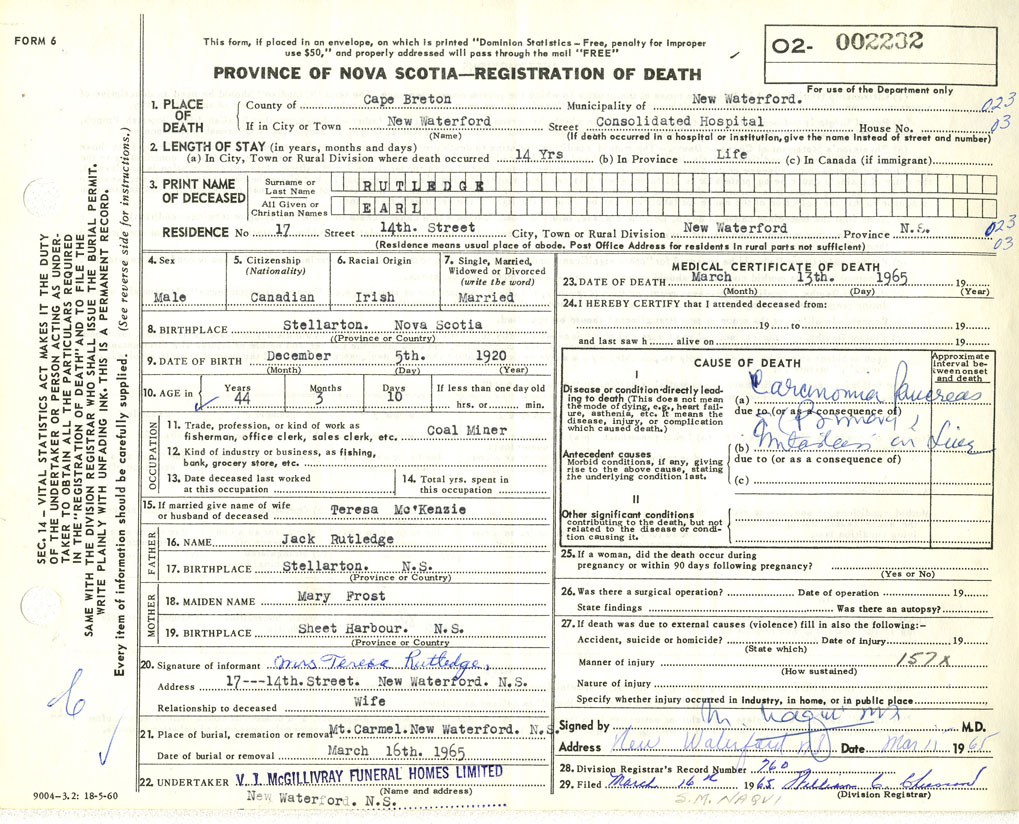 FORM 6
This form, if placed in an envelope, on which is printed "Dominion Statistics – Free, penalty for improper
use $50," and properly addressed will pass through the mail "FREE"
PROVINCE OF NOVA SCOTIA—REGISTRATION OF DEATH
O2- 002232
For use of the Department only
1. PLACE OF DEATH
County of Cape Breton Municipality of New Waterford. 023
If in City or Town New Waterford Street Consolidated Hospital House No. 03
(Name) (If death occurred in a hospital or institution, give the name instead of street and number)
2. LENGTH OF STAY (in years, months and days)
(a) In City, Town or Rural Division where death occurred 14 Yrs (b) In Province Life (c) In Canada (if immigrant)
3. PRINT NAME OF DECEASED
Surname or Last Name RUTLEDGE
All Given or Christian Names EARL
RESIDENCE No 17 Street 14th. Street City, Town or Rural Division New Waterford Province N.S. 023
03
(Residence means usual place of abode. Post Office Address for residents in rural parts not sufficient)
4. Sex
Male
5. Citizenship (Nationality)
Canadian
6. Racial Origin
Irish
7. Single, Married, Widowed or Divorced (write the word)
Married
8. BIRTHPLACE Stellarton. Nova Scotia
((Province or Country)
9. DATE OF BIRTH December 5th. 1920
(Month) (Day) (Year)
10. AGE in Years 44 Months 3 Days 10 If less than one day old hrs. or min.
OCCUPATION
11. Trade, profession, or kind of work as
fisherman, office clerk, sales clerk, etc. Coal Miner
12. Kind of industry or business, as fishing,
bank, grocery store, etc.
13. Date deceased last worked
at this occupation
14. Total yrs. spent in
this occupation
15. If married give name of wife
or husband of deceased Teresa Mc'Kenzie
FATHER
16. NAME Jack Rutledge
17. BIRTHPLACE Stellarton. N.S.
(Province or Country)
MOTHER
18. MAIDEN NAME Mary Frost
19. BIRTHPLACE Sheet Harbour. N.S.
(Province or Country
20. Signature of informant Mrs Teresa Rutledge,
Address 17---14th.Street. New Waterford. N.S.
Relationship to deceased Wife
21. Place of burial, cremation or removal Mt.Carmel.New Waterford. N.S.
Date of burial or removal March 16th. 1965
22. UNDERTAKER V. J. McGILLIVRAY FUNERAL HOMES LIMITED
(Name and address)
New Waterford. N.S.
MEDICAL CERTIFICATE OF DEATH
23. DATE OF DEATH March 13th. 1965 19
(Month) (Day) (Year)
24. I HEREBY CERTIFY that I attended deceased from:
19 to 19
and last saw h alive on 19
CAUSE OF DEATH
Approximate interval between onset and death
I
Disease or condition directly leading to death (This does not mean the mode of dying, e.g., heart failure, asthenia, etc. It means the disease, injury, or complication which caused death.)
(a) Carcinomia Pancreas
due to (or as a consequence of)
(Primary)
(b) Mitastasis in Liver
due to (or as a consequence of)
(c)
Antecedent causes
Morbid conditions, if any, giving rise to the above cause, stating the underlying condition last.
II
Other significant conditions
contributing to the death, but not related to the disease or condition causing it.
25. If a woman, did the death occur during
pregnancy or within 90 days following pregnancy?
(Yes or No)
26. Was there a surgical operation? Date of operation 19
State findings Was there an autopsy?
27. If death was due to external causes (violence) fill in also the following:–
Accident, suicide or homicide? Date of injury 19
(State which)
Manner of injury 157X
(How sustained)
Nature of injury
Specify whether injury occurred in industry, in home, or in public place
Signed by M. Naqui MD M.D.
Address New Waterford NS Date Mar 11 1965
28. Division Registrar's Record Number 760
29. Filed March 16th 1965
(Division Registrar)
S.M. NAQVI
9004-3.2: 18-5-60
SEC. 14 – VITAL STATISTICS ACT MAKES IT THE DUTY
OF THE UNDERTAKER OR PERSON ACTING AS UNDER-
TAKER TO OBTAIN ALL THE PARTICULARS REQUIRED
IN THE "REGISTRATION OF DEATH" AND TO FILE THE
SAME WITH THE DIVISION REGISTRAR WHO SHALL ISSUE THE BURIAL PERMIT.
WRITE PLAINLY WITH UNFADING INK. THIS IS A PERMANENT RECORD.
Every item of information should be carefully supplied. (See reverse side for instructions.)